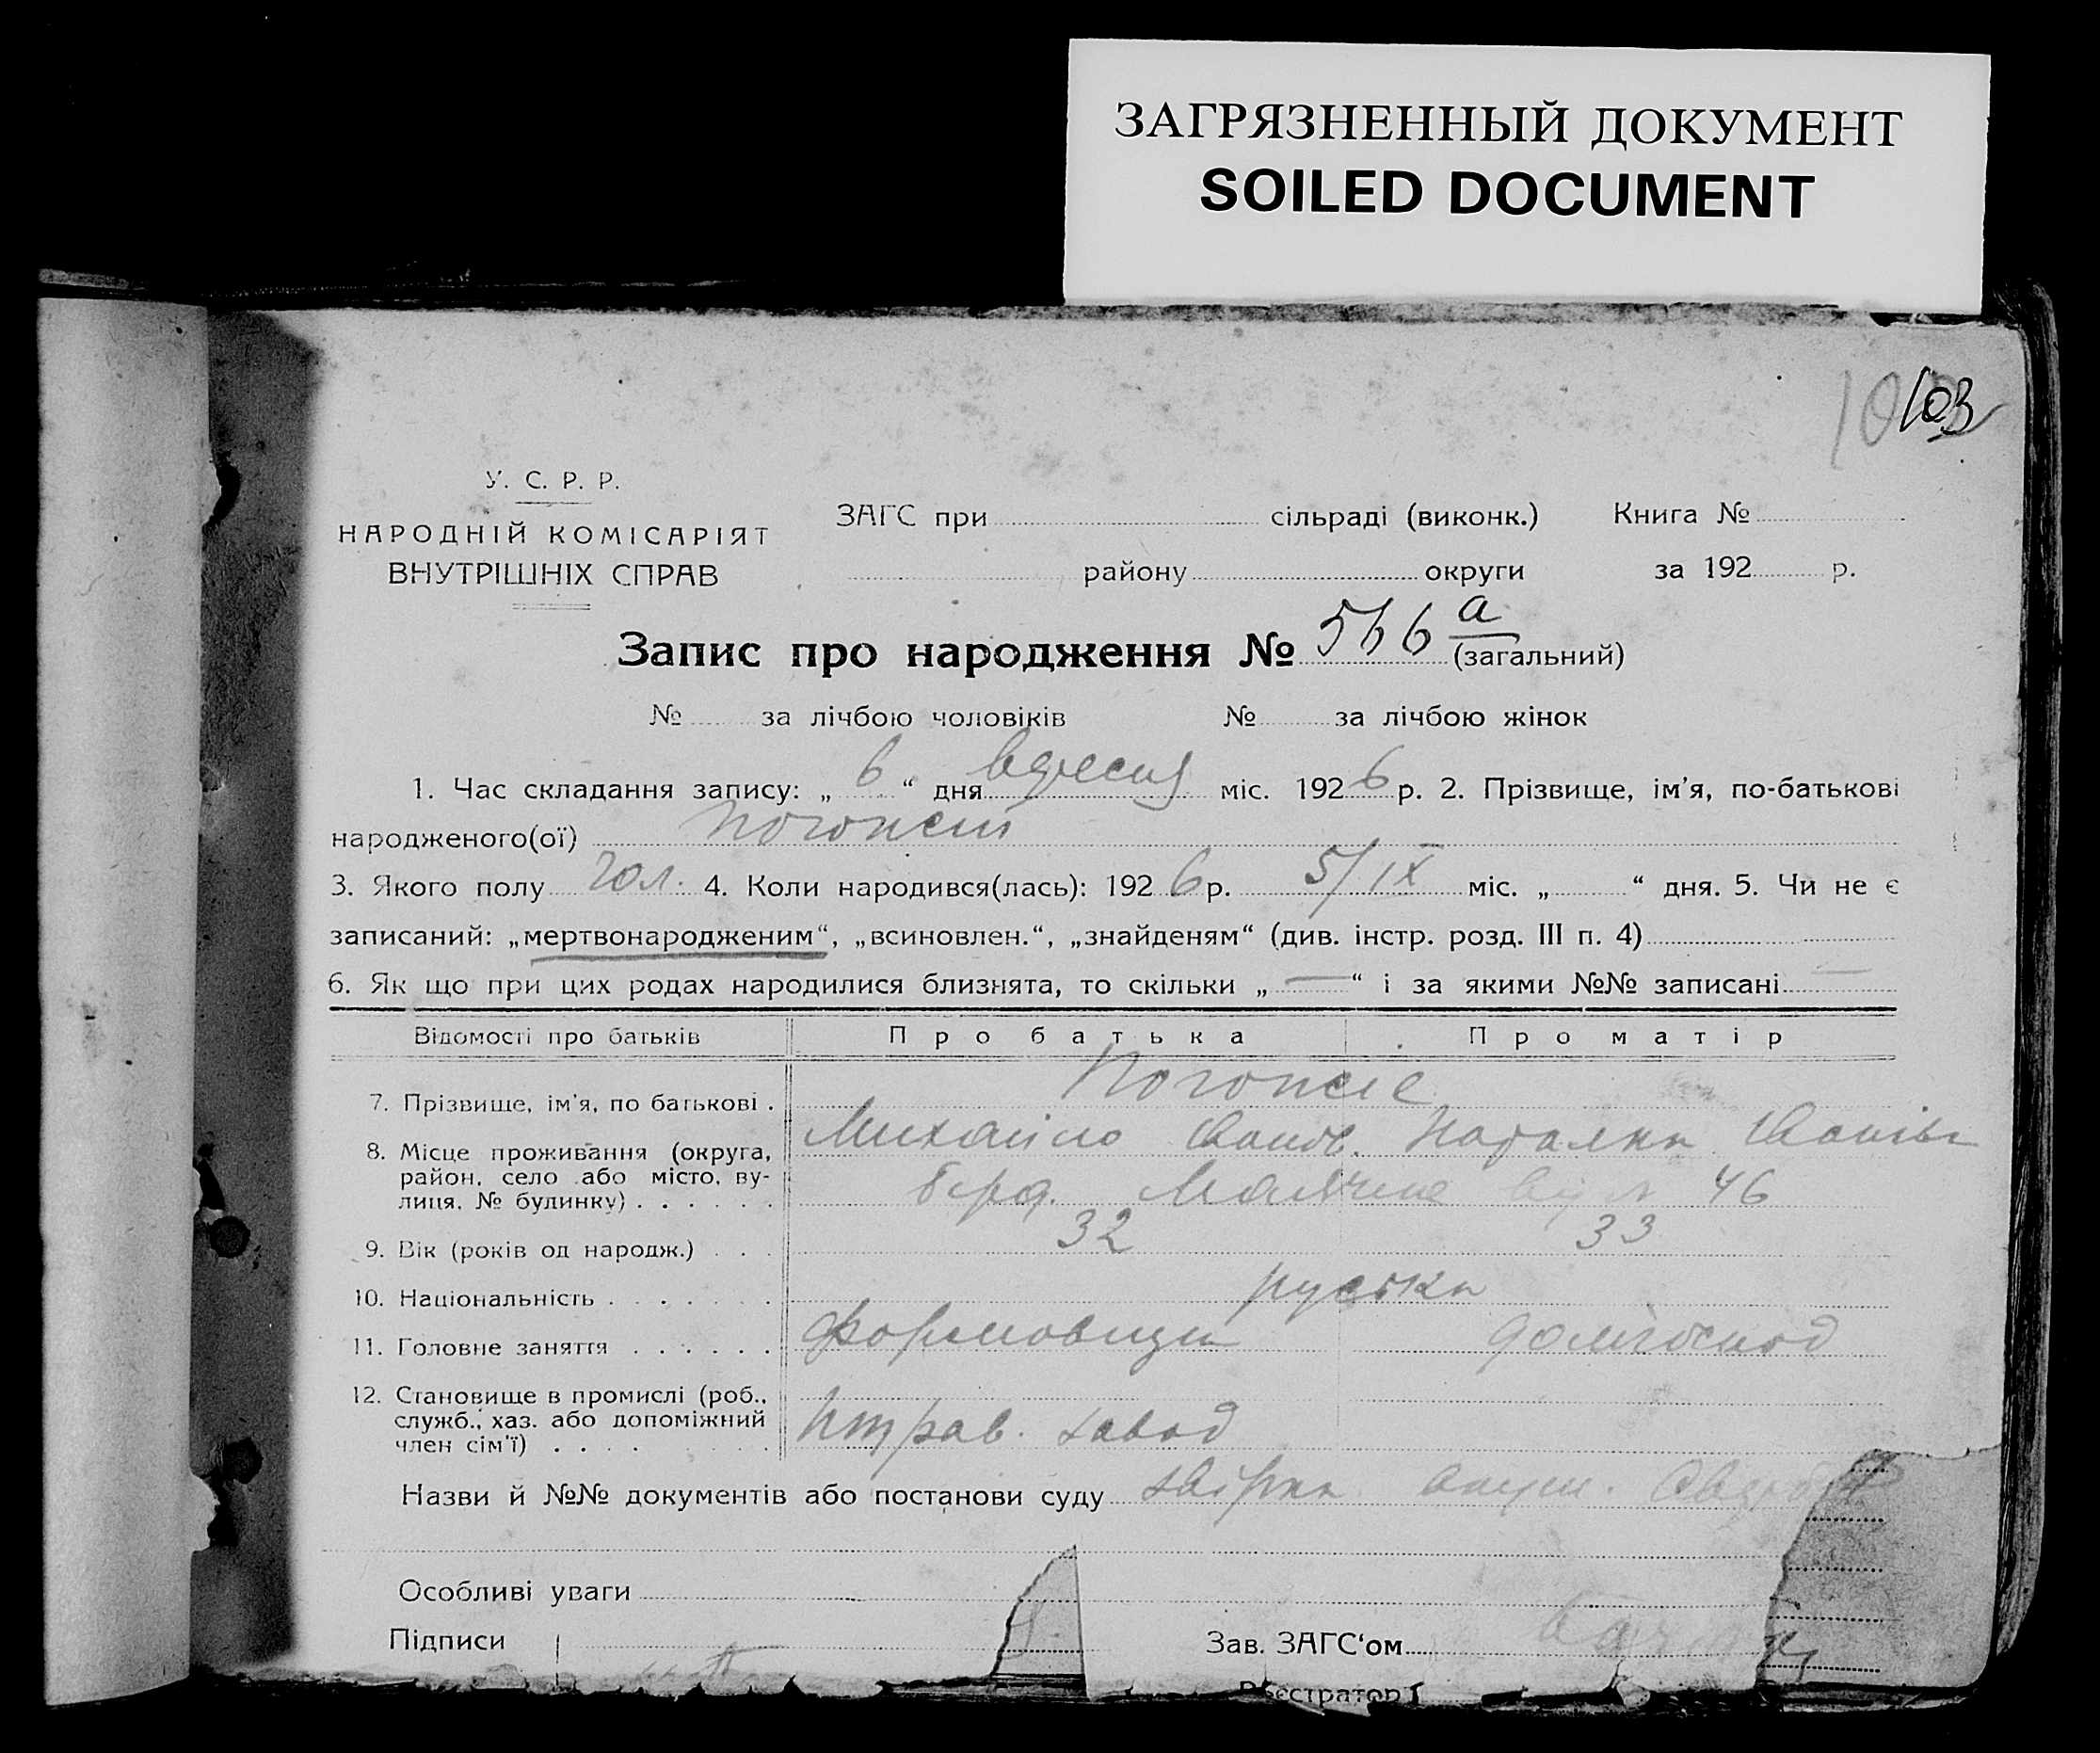 ЗАГРЯЗНЕННЫЙ ДОКУМЕНТ
SOILED DOCUMENT
103
У. С. Р. Р.
НАРОДНІЙ КОМІСАРІЯТ
ВНУТРІШНІХ СПРАВ
ЗАГС при сільраді (виконк.) Книга №
району округи за 192 р.
Запис про народження № 566 а (загальний)
№ за лічбою чоловіків № за лічбою жінок
1. Час складання запису: „ 6 “ дня вересня міс. 192 6 р. 2. Прізвище, ім’я, по-батькові
народженого(ої)
3. Якого полу чол. 4. Коли народився(лась): 192 6 р. 5/IX міс. „ “ дня. 5. Чи не є
записаний: „мертвонародженим“, „всиновлен.“, „знайденям“ (див. інстр. розд. III п. 4)
6. Як що при цих родах народилися близнята, то скільки „ — “ і за якими №№ записані —
Відомості про батьків Про батька Про матір
7. Прізвище, ім’я, по батькові .
Михайло Наталка
8. Місце проживання (округа,
район, село або місто, ву-
лиця, № будинку) . . . . . . 46
9. Вік (років од народж.) . . . 32 33
10. Національність . . . . . . . руські
11. Головне заняття . . . . . . формовщик домгоспод
12. Становище в промислі (роб.,
служб., хаз. або допоміжний
член сім’ї) . . . . завод
Назви й №№ документів або постанови суду
Особливі уваги
Підписи Зав. ЗАГС‘ом
Реєстратор